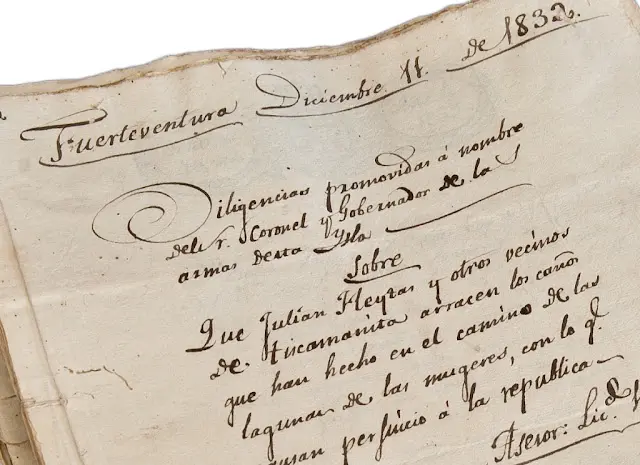 Fuerteventura Diciembre 11. de 1832.
Diligencias promovidas á nombre
del Sr. Coronel y Gobernador de las
armas desta Ysla
Sobre
Que Julian Fleytas y otros vecinos
de Tiscamanita arracen los caños
que han hecho en el camino de las
lagunas de las mugeres, con lo q.
causan perjuicio á la republica
Asesor: Lic.do